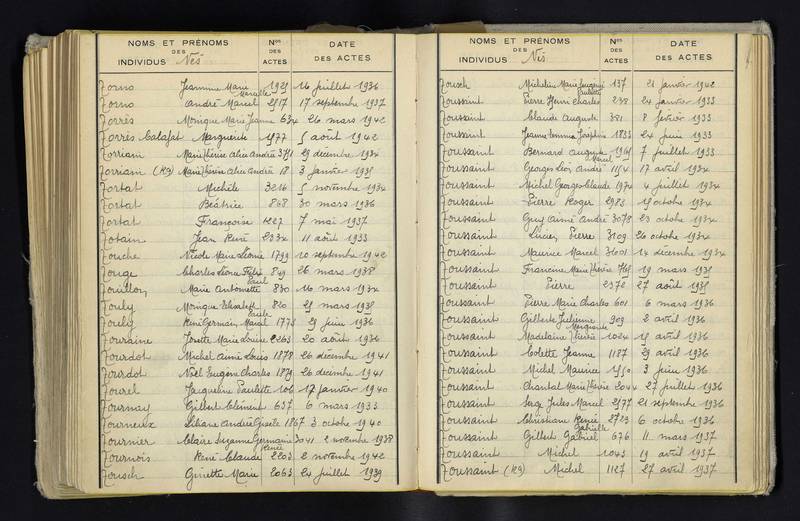 NOMS ET PRÉNOMS DES INDIVIDUS Nés
Nos DES ACTES
DATE DES ACTES
Torno Jeannine Marie Marcelle 1929 16 juillet 1936
Torno André Marcel 2517 17 septembre 1937
Torrès Monique Marie Jeanne 634 26 mars 1942
Torrès Calafat Marguerite 1977 5 août 1942
Torriani Marie Thérèse Alice Andrée 3751 29 décembre 1934
Torriani (R9) Marie Thérèse Alice Andrée 18 3 janvier 1935
Tortat Michèle 3216 5 novembre 1934
Tortat Béatrice 868 30 mars 1936
Tortat Françoise 1227 7 mai 1937
Totain Jean René 2334 11 août 1933
Touche Nicole Marie Léonie 1799 10 septembre 1942
Touge Charles Léonce Félix Paul 849 26 mars 1938
Touillon Marie Antoinette 830 16 mars 1934
Touly Monique Elisabeth Emile 820 25 mars 1935
Touly René Germain Marcel 1773 29 juin 1936
Touraine Josette Marie Louise 2263 20 août 1936
Tourdot Michel Aimé Louis 1878 26 décembre 1941
Tourdot Noël Eugène Charles 1879 26 décembre 1941
Tourel Jacqueline Paulette 106 17 janvier 1940
Tournay Gilbert Clément 637 6 mars 1933
Tourneux Liliane Andrée Gisèle 1867 3 octobre 1940
Tournier Claire Suzanne Germaine Renée 3041 2 novembre 1938
Tournois René Claude 2203 2 novembre 1942
Tousch Ginette Marie 2063 24 juillet 1939
NOMS ET PRÉNOMS DES INDIVIDUS Nés
Nos DES ACTES
DATE DES ACTES
Tousch Micheline Marie Eugénie Paulette 137 21 janvier 1942
Toussaint Pierre Henri Charles 238 24 janvier 1933
Toussaint Claude Auguste 381 8 février 1933
Toussaint Jeanne Emma Joséphine 1833 24 juin 1933
Toussaint Bernard Auguste Marcel 1965 7 juillet 1933
Toussaint Georges Léon André 1154 17 avril 1934
Toussaint Michel Georges Claude 1974 4 juillet 1934
Toussaint Pierre Roger 2983 15 octobre 1934
Toussaint Guy Aimé André 3078 23 octobre 1934
Toussaint Lucien Pierre 3109 26 octobre 1934
Toussaint Maurice Marcel 3601 14 décembre 1934
Toussaint Francine Marie Thérèse 765 19 mars 1935
Toussaint Pierre 2372 27 août 1935
Toussaint Pierre Marie Charles 601 6 mars 1936
Toussaint Gilberte Julienne Marguerite 909 2 avril 1936
Toussaint Madeleine Thérèse 1024 15 avril 1936
Toussaint Colette Jeanne 1187 29 avril 1936
Toussaint Michel Maurice 1550 3 juin 1936
Toussaint Chantal Marie Thérèse 2044 27 juillet 1936
Toussaint Serge Jules Marcel 2577 21 septembre 1936
Toussaint Christiane Renée Gabrielle 2723 6 octobre 1936
Toussaint Gilbert Gabriel 676 11 mars 1937
Toussaint Michel 1043 19 avril 1937
Toussaint (R9) Michel 1127 27 avril 1937